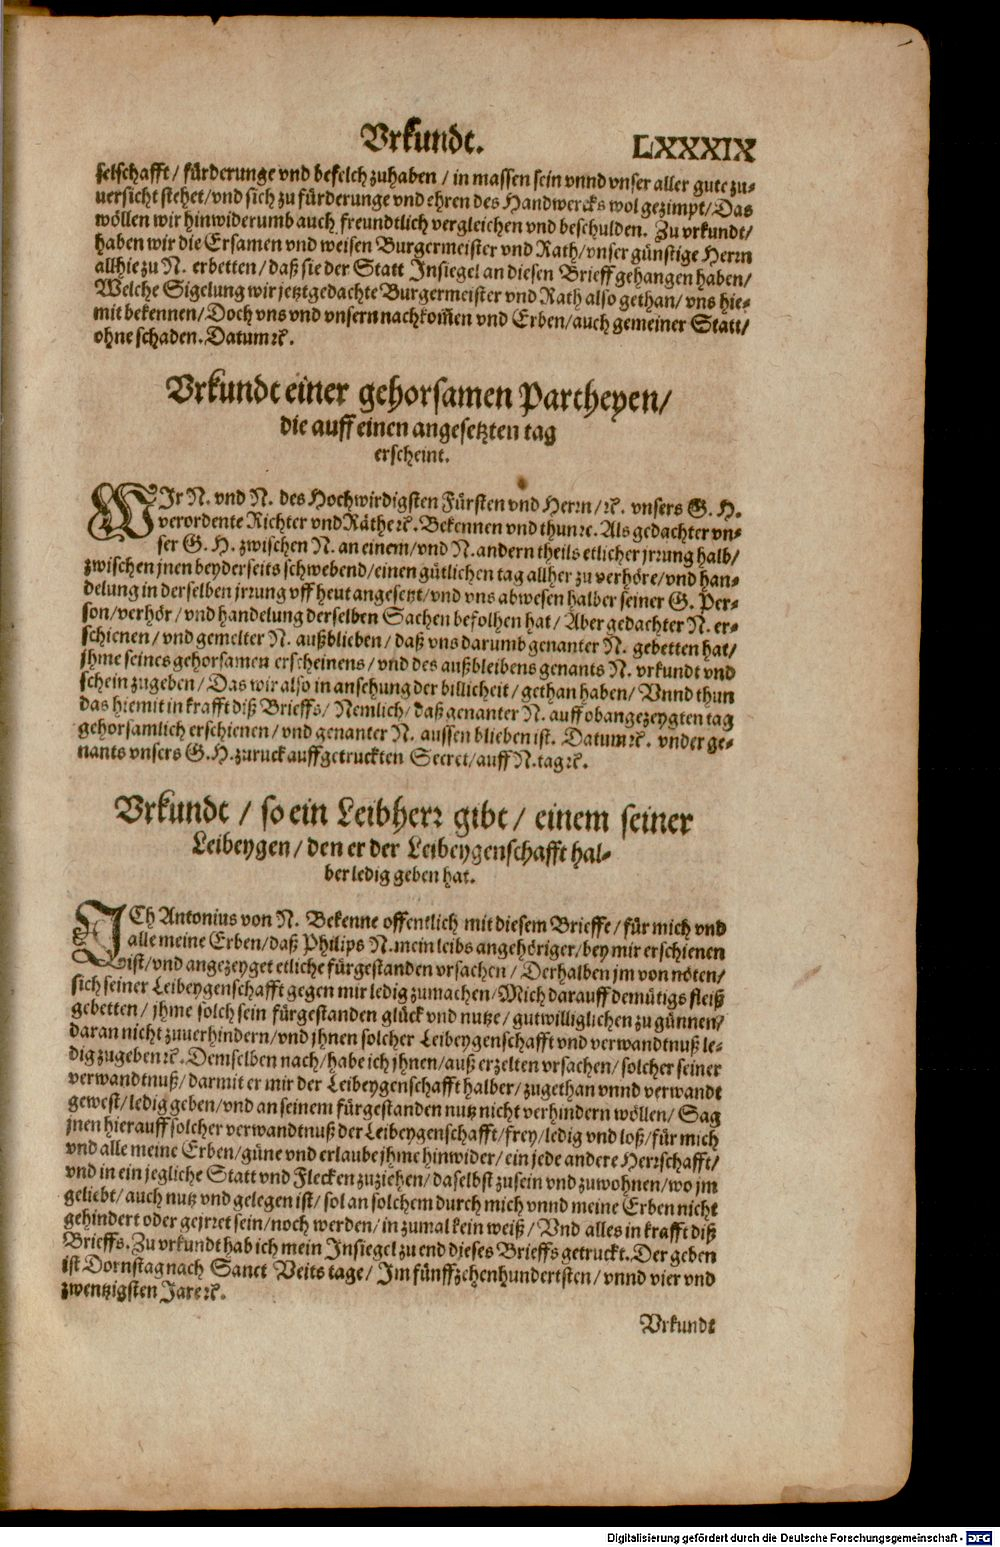 Vrkundt. LXXXIX
selschafft / fürderunge vnd befelch zuhaben / in massen sein vnnd vnser aller gute zu-
uersicht stehet/vnd sich zu fürderunge vnd ehren des Handwercks wol gezimpt/Das
wöllen wir hinwiderumb auch freundtlich vergleichen vnd beschulden. Zu vrkundt/
haben wir die Ersamen vnd weisen Burgermeister vnd Rath/vnser günstige Herrn
allhie zu N. erbetten/daß sie der Statt Insiegel an diesen Brieff gehangen haben/
Welche Sigelung wir jetztgedachte Burgermeister vnd Rath also gethan/ vns hie-
mit bekennen/Doch vns vnd vnsern nachkom̃en vnd Erben/auch gemeiner Statt/
ohne schaden. Datum ꝛc̃.
Vrkundt einer gehorsamen Partheyen/
die auff einen angesetzten tag
erscheint.
WIr N. vnd N. des Hochwirdigsten Fürsten vnd Herrn/ꝛc̃. vnsers G. H.
verordente Richter vnd Räthe ꝛc̃. Bekennen vnd thun ꝛc. Als gedachter vn-
ser G. H. zwischen N. an einem/vnd N. andern theils etlicher jrrung halb/
zwischen jnen beyderseits schwebend/einen gütlichen tag allher zu verhöre/vnd han-
delung in derselben jrrung vff heut angesetzt/vnd vns abwesen halber seiner G. Per-
son/verhör/vnd handelung derselben Sachen befolhen hat/ Aber gedachter N. er-
schienen/vnd gemelter N. außblieben/ daß vns darumb genanter N. gebetten hat/
jhme seines gehorsamen erscheinens/vnd des außbleibens genants N. vrkundt vnd
schein zugeben/Das wir also in ansehung der billicheit/gethan haben/ Vnnd thun
das hiemit in krafft diß Brieffs/ Nemlich/ daß genanter N. auff obangezeygten tag
gehorsamlich erschienen/vnd genanter N. aussen blieben ist. Datum ꝛc̃. vnder ge-
nants vnsers G. H. zuruck auffgetruckten Secret/auff N. tag ꝛc̃.
Vrkundt / so ein Leibherr gibt / einem seiner
Leibeygen/den er der Leibeygenschafft hal-
ber ledig geben hat.
ICh Antonius von N. Bekenne offentlich mit diesem Brieffe/für mich vnd
alle meine Erben/daß Philips N. mein leibs angehöriger/bey mir erschienen
ist/vnd angezeyget etliche fürgestanden vrsachen/ Derhalben jm von nöten/
sich seiner Leibeygenschafft gegen mir ledig zumachen/Mich darauff demütigs fleiß
gebetten / jhme solch sein fürgestanden glück vnd nutze/gutwilliglichen zu günnen/
daran nicht zuuerhindern/vnd jhnen solcher Leibeygenschafft vnd verwandtnuß le-
dig zugeben ꝛc̃. Demselben nach/habe ich jhnen/auß erzelten vrsachen/solcher seiner
verwandtnuß/darmit er mir der Leibeygenschafft halber/zugethan vnnd verwandt
gewest/ledig geben/vnd an seinem fürgestanden nutz nicht verhindern wöllen/ Sag
jnen hierauff solcher verwandtnuß der Leibeygenschafft/frey/ledig vnd loß/für mich
vnd alle meine Erben/güne vnd erlaube jhme hinwider/ein jede andere Herrschafft/
vnd in ein jegliche Statt vnd Flecken zuziehen/daselbst zusein vnd zuwohnen/wo jm
geliebt/auch nutz vnd gelegen ist/ sol an solchem durch mich vnnd meine Erben nicht
gehindert oder gejrret sein/noch werden/in zumal kein weiß/ Vnd alles in krafft diß
Brieffs. Zu vrkundt hab ich mein Insiegel zu end dieses Brieffs getruckt. Der geben
ist Dornstag nach Sanct Veits tage/ Im fünffzehenhundertsten/vnnd vier vnd
zwentzigsten Jare ꝛc̃.
Vrkundt
Digitalisierung gefördert durch die Deutsche Forschungsgemeinschaft - DFG